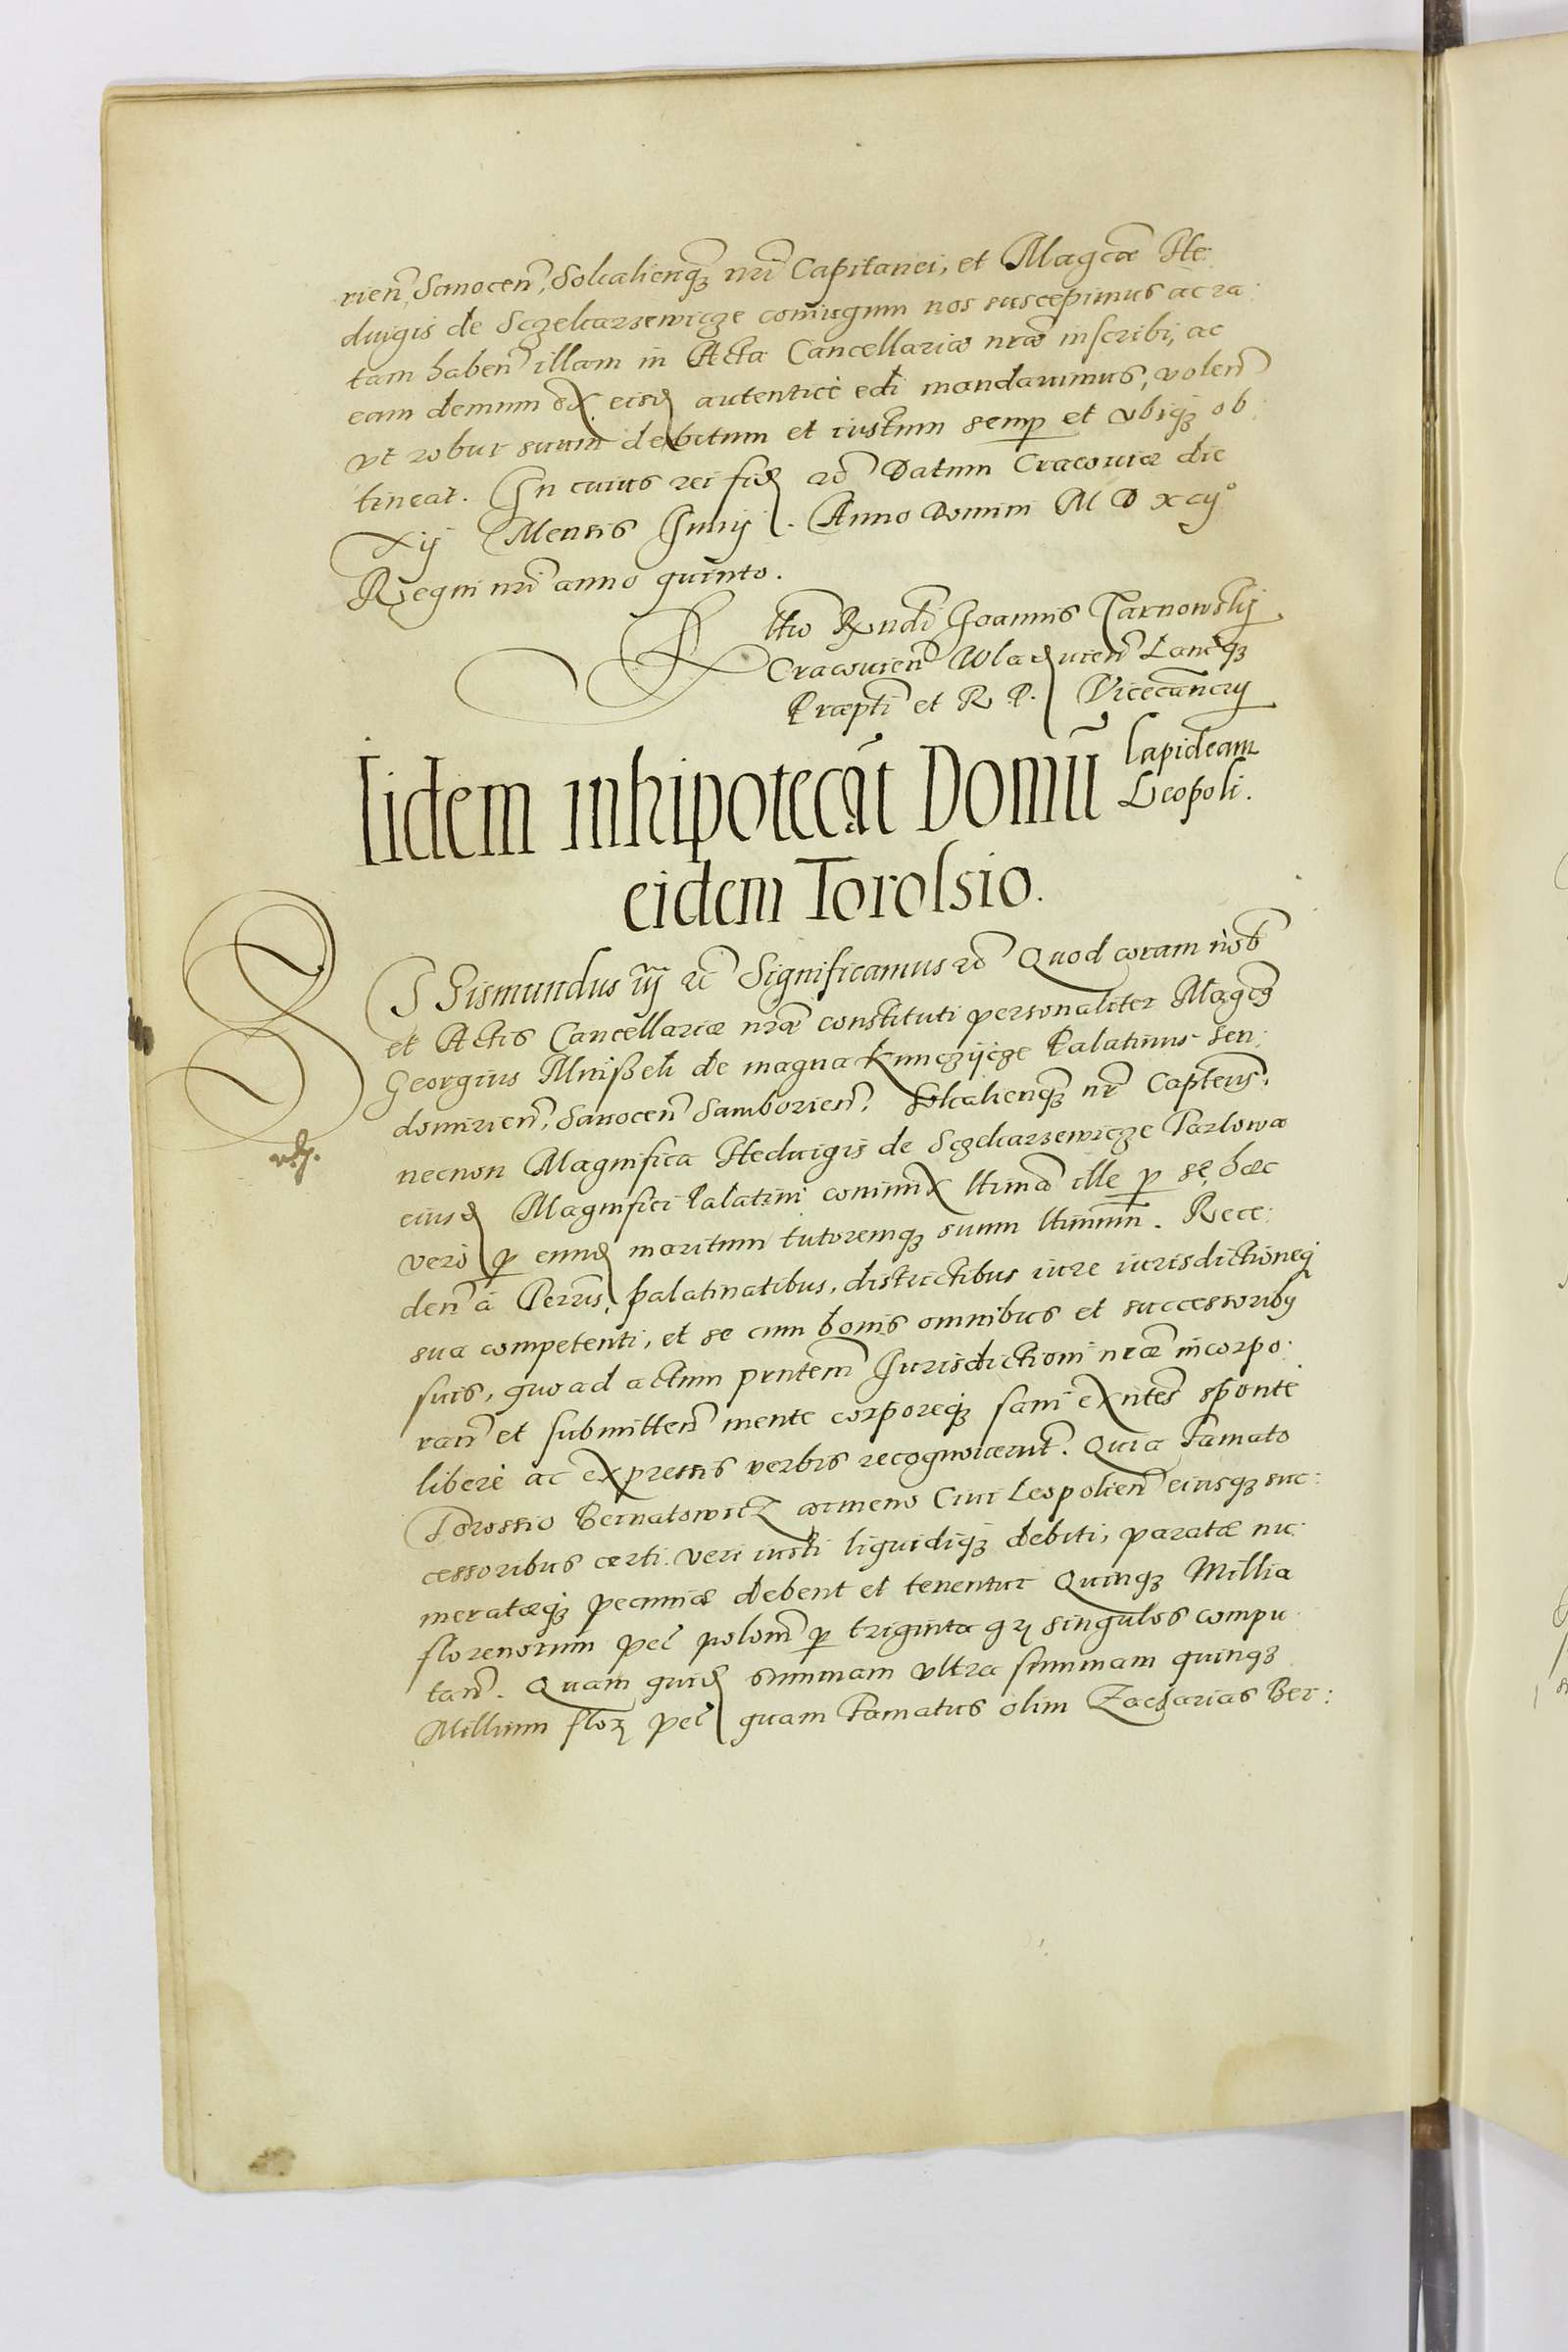 rien, Sanocen, Solcalienq nri Capitanei, et Magcæ He:
duigis de Sczekarzewicze coniugum nos suscepimus ac ra:
tam haben illam in Acta Cancellariæ nræ inscribi, ac
eam demum ex eisd autenticè edi mandauimus, volen
vt robur suum debitum et iustum semp et vbiq ob:
tineat. In cuius rei fid etc Datum Cracouiæ die
xij Mensis Junij. Anno Domini M D xcij°
Regni nri anno quinto.
Rltio Rndi Joannis Tarnowskij
Cracouien Wladuien Lanciq
Præpti et R P. Vicecancrij
Iidem inhipotecāt Domū lapideam
Leopoli.
eidem Torosio.
SIGismundus iij etc Significamus etc Quod coram nob
et Actis Cancellariæ nræ constituti personaliter Magcus
Georgius Mnißek de magna Kunczijcze Palatinus Sen:
domirien, Sanocen Samborien, Solcalienq nr Capteus,
necnon Magnifica Heduigis de Sczekarzewicze Tarlowa
eiusd Magnifici Palatini coniunx ltima ille p se, hæc
vero p eund maritum tutoremq suum ltimum. Rece:
den à Terris, palatinatibus, districtibus iure iurisdictioneq
sua competenti, et se cum bonis omnibus et successoribus
suis, quo ad actum pntem Jurisdictioni nræ incorpo:
ran et submitten mente corporeq sani exntes sponte
liberè ac expressis verbis recognouerunt. Quia Famato
Torossio Bernatowicz armeno Ciui Leopolien eiusq suc:
cessoribus certi veri iusti liquidiq debiti, paratæ nu:
meratæq pecuniæ debent et tenentur Quinq Millia
florenorum pec polon p triginta gr singulos compu:
tan. Quam quid summam vltra summam quinq
Millium flor pec quam Famatus olim Zacharias Ber: